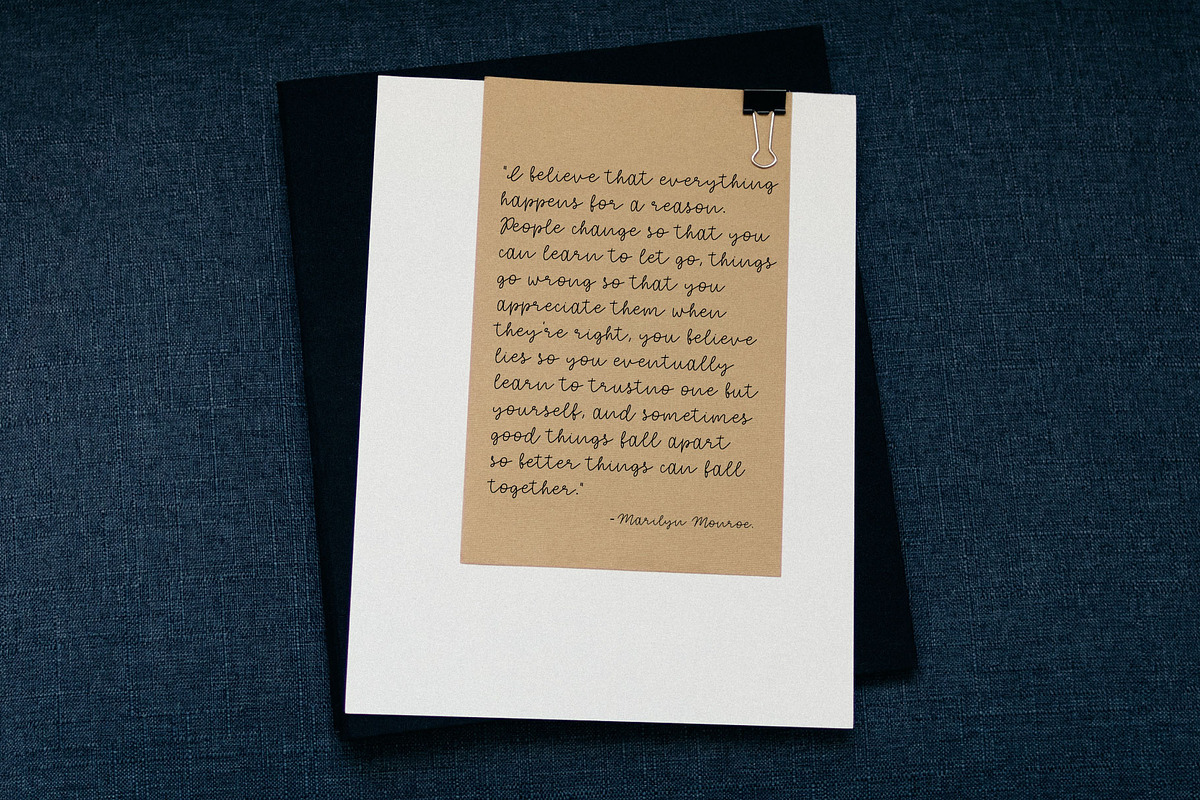 "I believe that everything
happens for a reason.
People change so that you
can learn to let go, things
go wrong so that you
appreciate them when
they're right, you believe
lies so you eventually
learn to trustno one but
yourself, and sometimes
good things fall apart
so better things can fall
together."
-Marilyn Monroe.